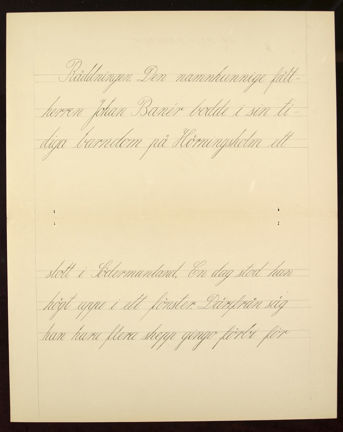 Räddningen. Den namnkunnige fält-
herren Johan Banér bodde i sin ti-
diga barndom på Hörningsholm ett
slott i Södermanland. En dag stod han
högt uppe i ett fönster. Därifrån såg
han huru flera skepp gingo förbi för